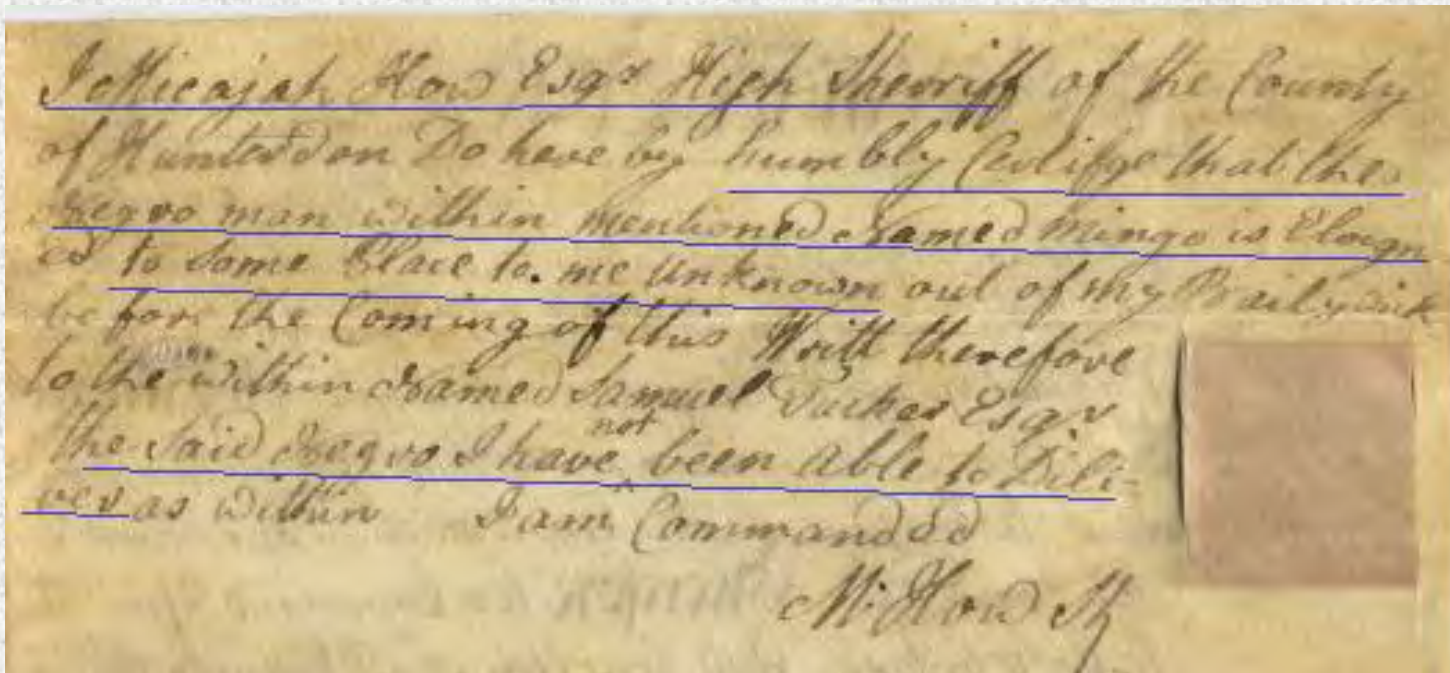 I Micajah How Esqr High Sherriff of the County
of Hunterdon Do here by humbly Certifye that the
Negro man within mentioned Named Mingo is Eloign
ed to some Place to me unknown out of my Bailywick
before the Coming of this Writt therefore
to the within Named Samuel Tucker Esqr
the Said Negro I have not been Able to Dili-
ver as within I am Commanded
M: How Sh